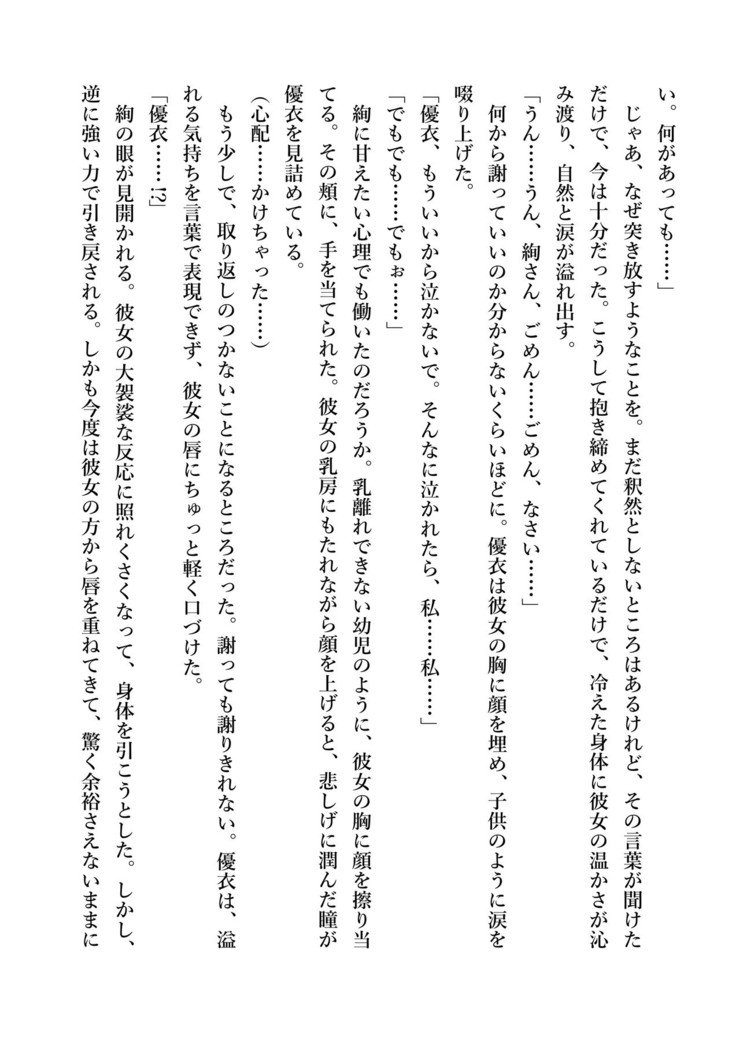 い。何があっても……」
　じゃあ、なぜ突き放すようなことを。まだ釈然としないところはあるけれど、その言葉が聞けた
だけで、今は十分だった。こうして抱き締めてくれているだけで、冷えた身体に彼女の温かさが沁
み渡り、自然と涙が溢れ出す。
「うん……うん、絢さん、ごめん……ごめん、なさい……」
　何から謝っていいのか分からないくらいほどに。優衣は彼女の胸に顔を埋め、子供のように涙を
啜り上げた。
「優衣、もういいから泣かないで。そんなに泣かれたら、私……私……」
「でもでも……でもぉ……」
　絢に甘えたい心理でも働いたのだろうか。乳離れできない幼児のように、彼女の胸に顔を擦り当
てる。その頬に、手を当てられた。彼女の乳房にもたれながら顔を上げると、悲しげに潤んだ瞳が
優衣を見詰めている。
（心配……かけちゃった……）
　もう少しで、取り返しのつかないことになるところだった。謝っても謝りきれない。優衣は、溢
れる気持ちを言葉で表現できず、彼女の唇にちゅっと軽く口づけた。
「優衣……!?」
　絢の眼が見開かれる。彼女の大袈裟な反応に照れくさくなって、身体を引こうとした。しかし、
逆に強い力で引き戻される。しかも今度は彼女の方から唇を重ねてきて、驚く余裕さえないままに